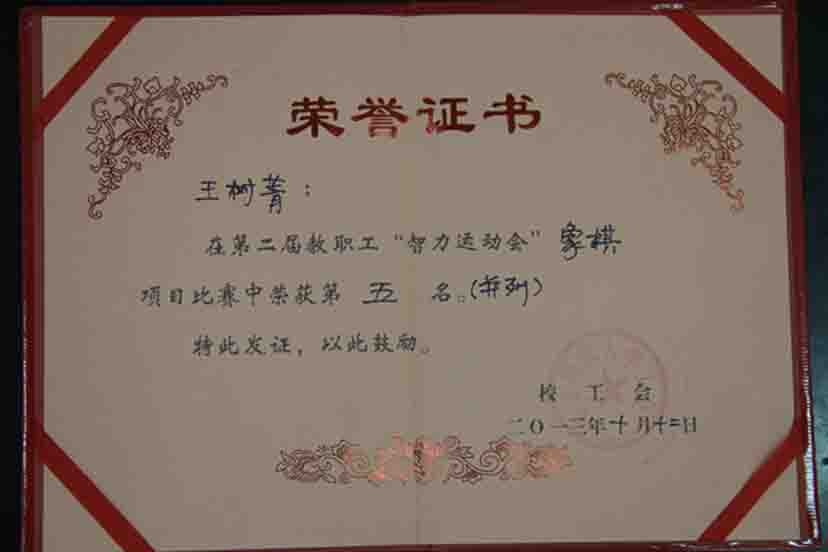 荣誉证书
王树菁：
在第二届教职工“智力运动会”象棋
项目比赛中荣获第五名。(并列)
特此发证，以此鼓励。
校工会
二〇一三年十月十二日